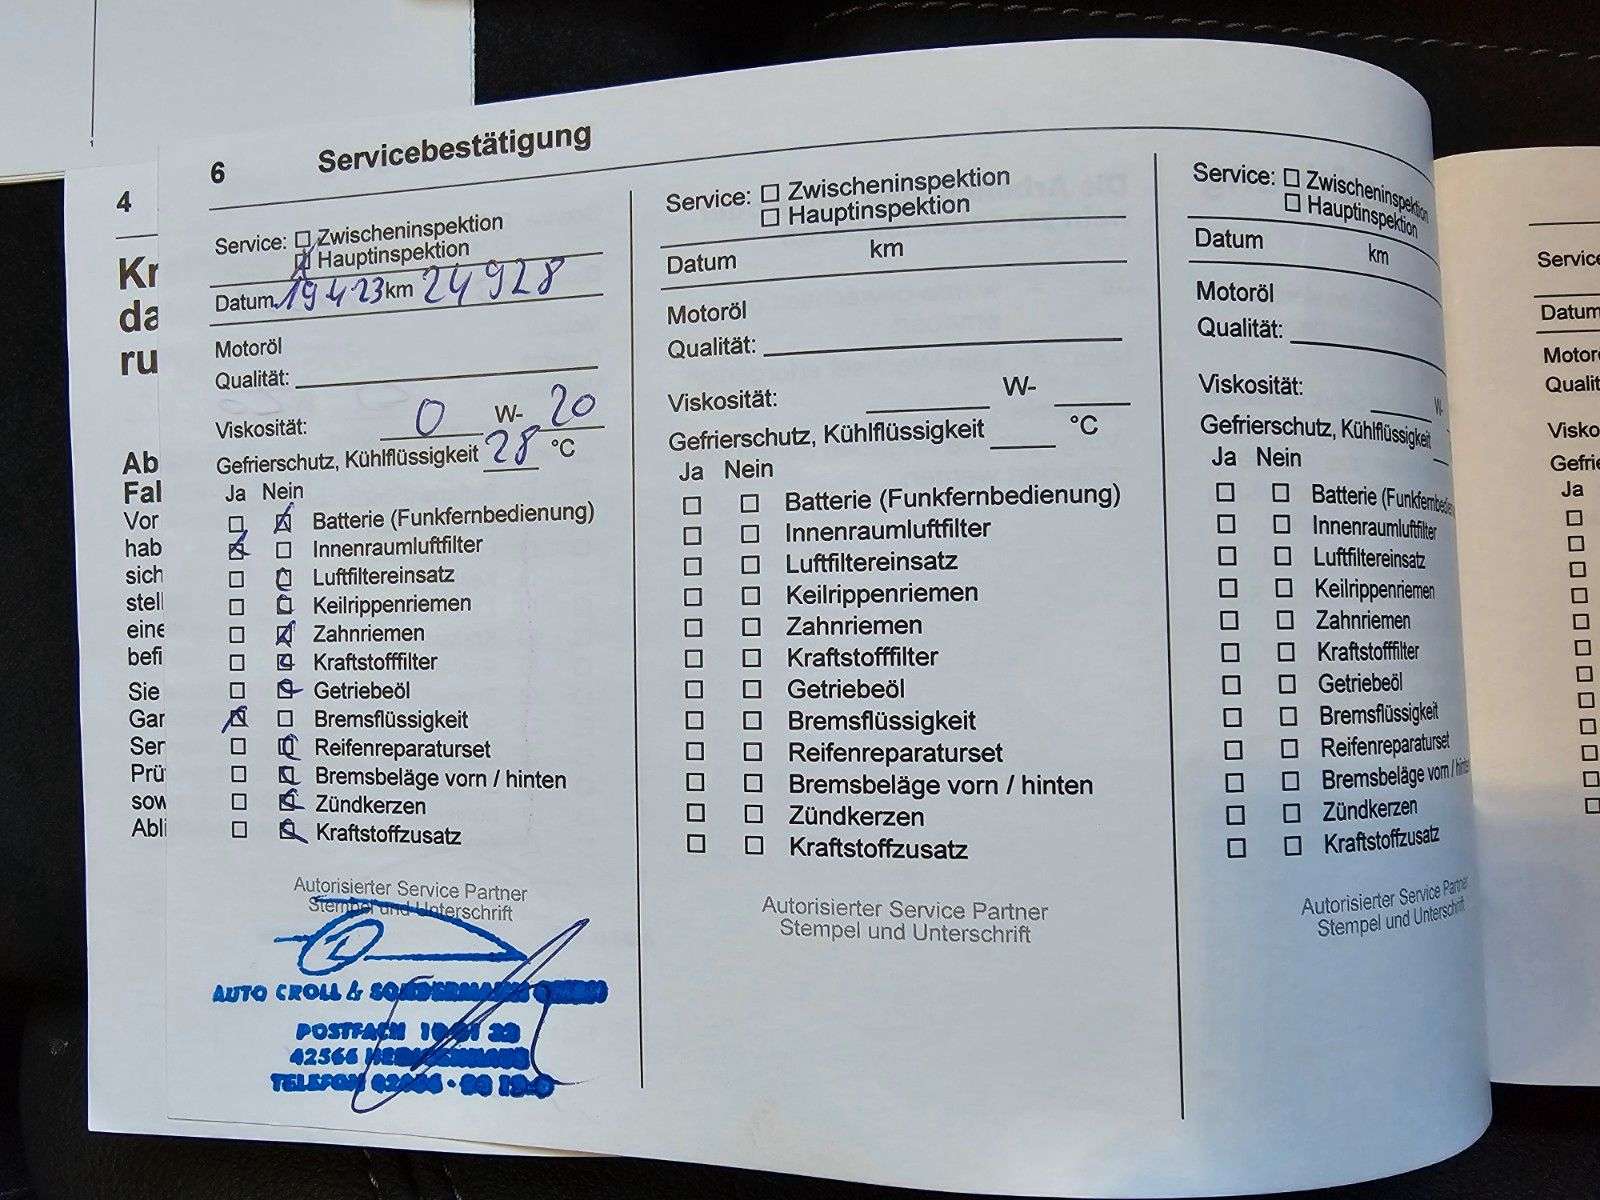 4
Kr
da
ru
Ab
Fal
Vor
hab
sich
stell
eine
befi
Sie
Gar
Ser
Prü
sow
Abli
6 Servicebestätigung
Service: Zwischeninspektion
Hauptinspektion
Datum 19 4 23 km 24928
Motoröl
Qualität:
Viskosität: 0 W- 20
Gefrierschutz, Kühlflüssigkeit 28 °C
Ja Nein
Batterie (Funkfernbedienung)
Innenraumluftfilter
Luftfiltereinsatz
Keilrippenriemen
Zahnriemen
Kraftstofffilter
Getriebeöl
Bremsflüssigkeit
Reifenreparaturset
Bremsbeläge vorn / hinten
Zündkerzen
Kraftstoffzusatz
Autorisierter Service Partner
Stempel und Unterschrift
AUTO CROLL & SONDERMANN
POSTFACH
42566
TELEFON
Service: Zwischeninspektion
Hauptinspektion
Datum km
Motoröl
Qualität:
Viskosität: W-
Gefrierschutz, Kühlflüssigkeit °C
Ja Nein
Batterie (Funkfernbedienung)
Innenraumluftfilter
Luftfiltereinsatz
Keilrippenriemen
Zahnriemen
Kraftstofffilter
Getriebeöl
Bremsflüssigkeit
Reifenreparaturset
Bremsbeläge vorn / hinten
Zündkerzen
Kraftstoffzusatz
Autorisierter Service Partner
Stempel und Unterschrift
Service: Zwischeninspektion
Hauptinspektion
Datum km
Motoröl
Qualität:
Viskosität: W-
Gefrierschutz, Kühlflüssigkeit
Ja Nein
Batterie (Funkfernbedie
Innenraumluftfilter
Luftfiltereinsatz
Keilrippenriemen
Zahnriemen
Kraftstofffilter
Getriebeöl
Bremsflüssigkeit
Reifenreparaturset
Bremsbeläge vorn / hinten
Zündkerzen
Kraftstoffzusatz
Autorisierter Service Partner
Stempel und Unterschrift
Service
Datum
Motor
Qualit
Visko
Gefrie
Ja